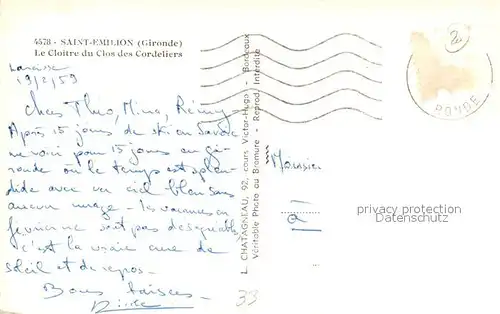 4578 - SAINT-EMILION (Gironde)
Le Cloître du Clos des Cordeliers
19/2/59
Chers Theo, Mina, Rémy -
Après 15 jours de ski en Savoie
me voici pour 15 jours en gi-
ronde où le temps est splen-
dide avec un ciel bleu sans
aucun nuage - les vacances en
février ne sont pas désagréables
c'est la vraie cure de
soleil et de repos -
Bons baisers -
L. CHATAGNEAU, 92, cours Victor-Hugo - Bordeaux
Véritable Photo au Bromure - Reprod. Interdite
Monsieur
à
privacy protection
Delcampe
33